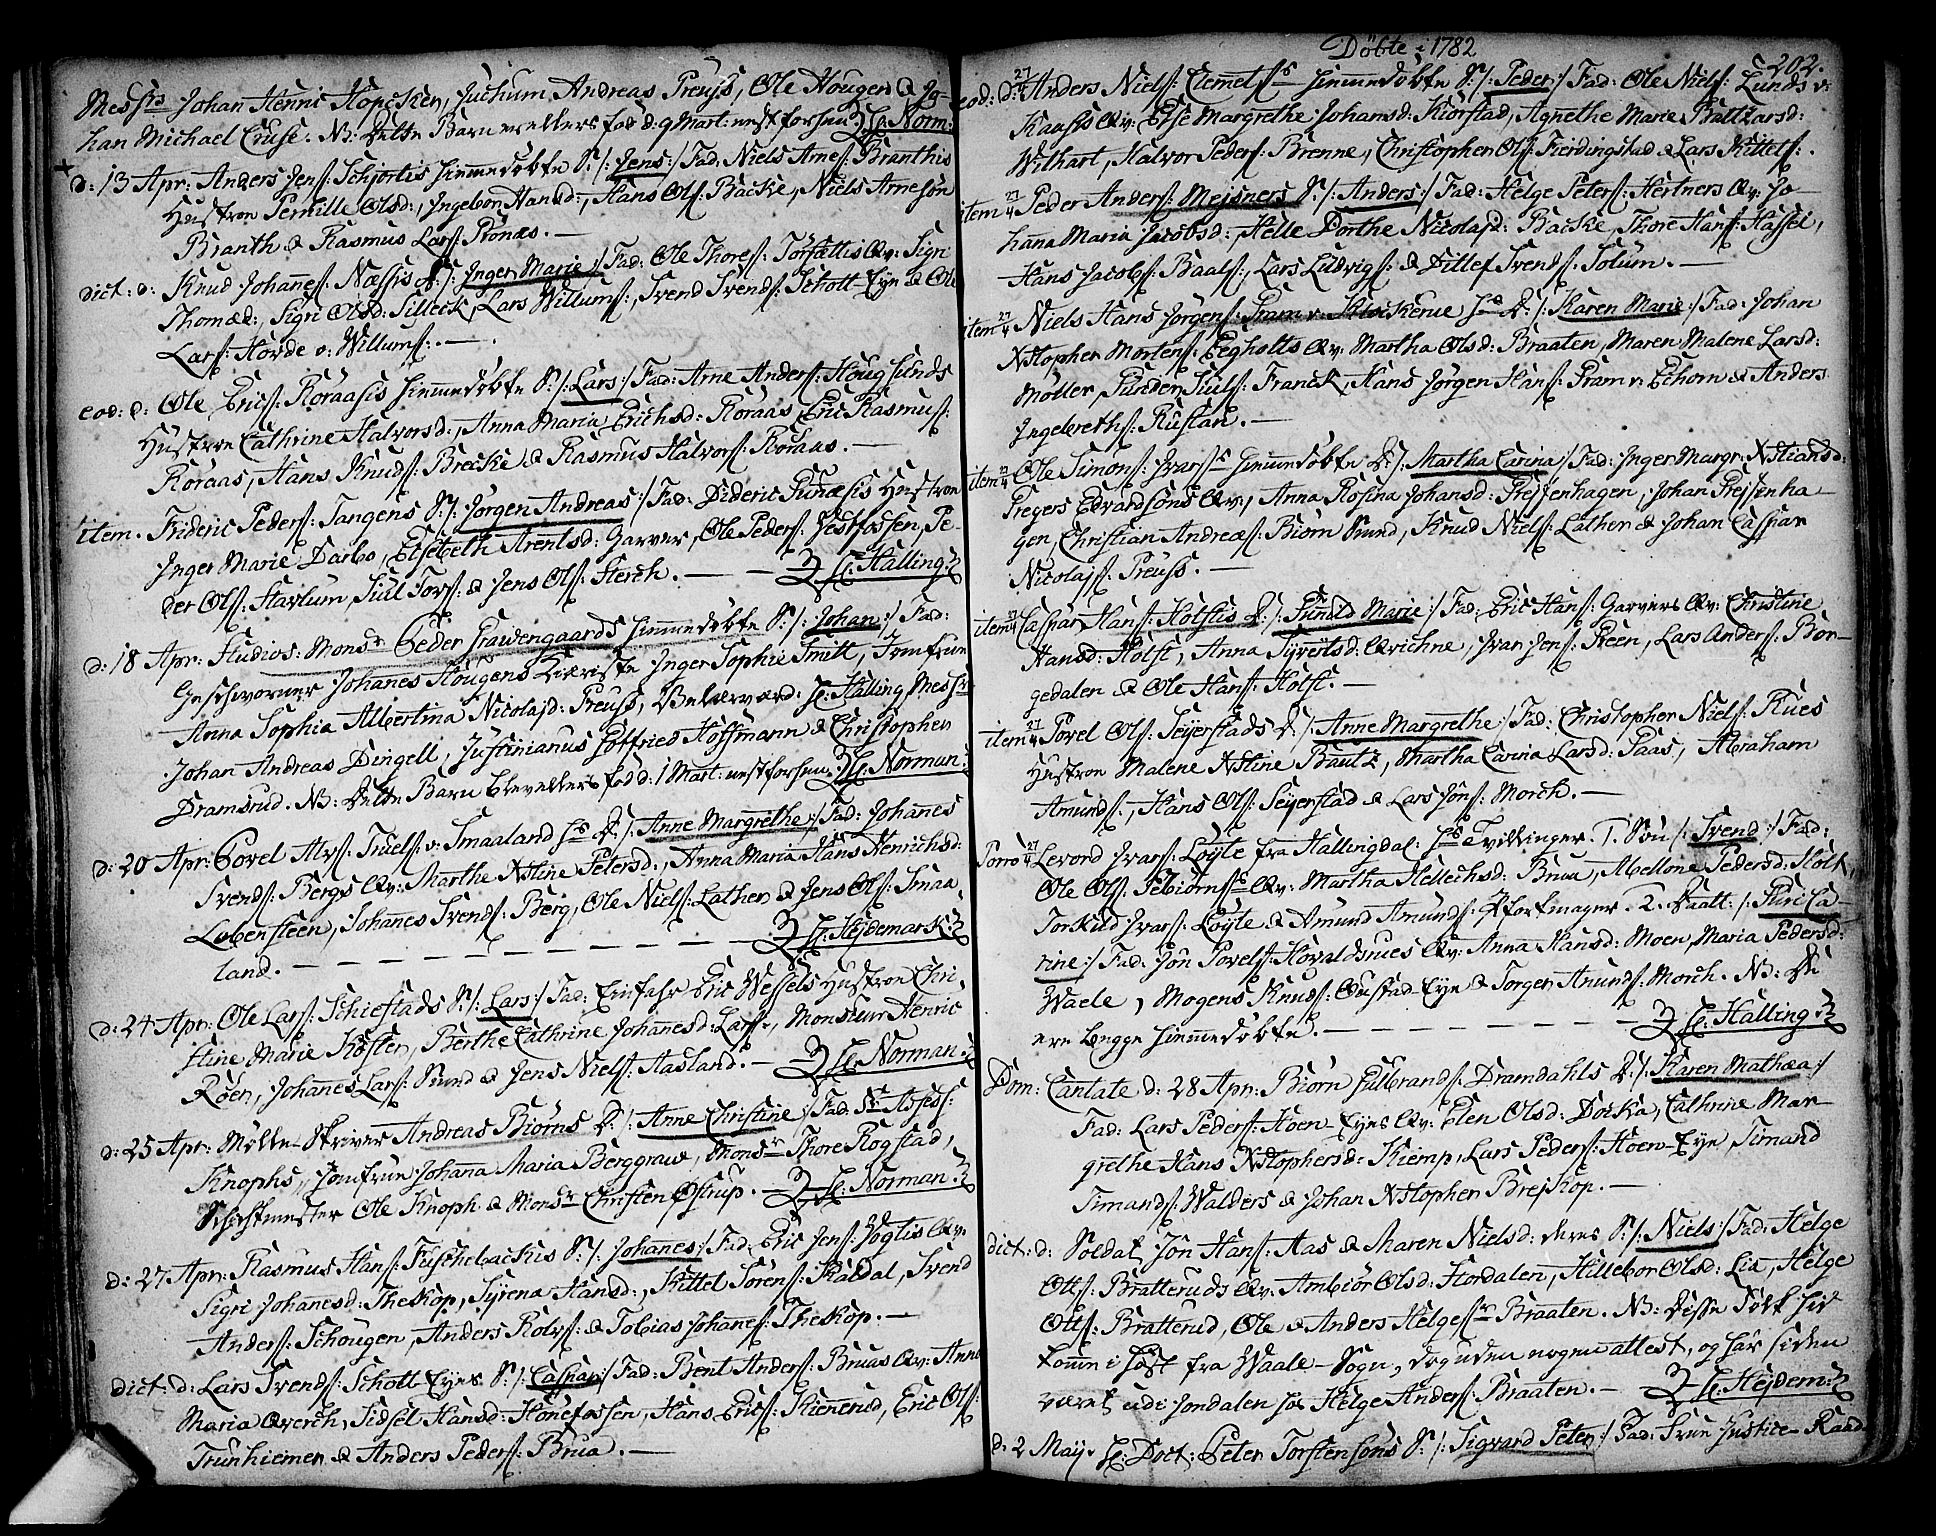 Messrs Johan Henric Hopcken, Juchum Andreas Preuss, Ole Hougen & Jo-
han Michael Cruse. NB: dette Barn er ellers fød d: 9 Mart: nestforhen H: Norm:
d: 13 Apr: Anders Jens: Schjortis hiemmedøbte S: /: Jens :/ Fad: Niels Arnes: Branthis
Hustroe Pernille Olsd:, Ingebor Hansd:, Hans Ols: Backe, Niels Arnesøn
Branth & Rasmus Lars: Pronæs. —
dict: d: Knud Johannes: Næssis D: /: Inger Marie :/ Fad: Ole Thores: Torfættis Qv: Sigri
Thomæd:, Sigri Olsd: Silleck, Lars Willums:, Svend Svends: Schott-Eye & Ole
Lars: Hovde v: Willums: . —
eod: d: Ole Erics: Roraasis hiemmedøbte S: /: Lars :/ Fad: Arne Anders: Hougsunds
Hustroe Cathrine Halvorsd:, Anna Maria Erichsd: Roraas, Eric Rasmus:
Roraas, Hans Knuds: Brecke & Rasmus Halvors: Roraas. —
item. Frideric Peders: Tangens S: /: Jørgen Andreas :/ Fad: Dideric Hustroe
Inger Marie Darbo, Elsebeth Arentsd: Garver, Ole Peders: Vestfossen, Pe-
der Ols: Havlum, Juul Tors: & Jens Ols: Sterch. — H: Halling
d: 18 Apr: Studios: Monsr Peder Prawengaards hiemmedøbte S: /: Johan :/ Fad:
Geschworner Johanes Hougens Kiæriste Inger Sophie Smitt, Jomfrue
Anna Sophia Albertina Nicolajd: Preuss, Velærværd: H: Halling, Messrs
Johan Andreas Dingell, Justinianus Gotfried Hoffmann & Christopher
Dramsrud. NB: dette Barn blev ellers fød d: 1 Mart: nestforhen. H: Norman:
d: 20 Apr: Povel Alvs: Truels: v: Smaaland hs D: /: Anne Margrethe :/ Fad: Johanes
Svends: Bergs Qv: Marthe Xstine Petersd:, Anna Maria Hans Henrichsd:
Lobensteen, Johanes Svends: Berg, Ole Niels: Lather & Jens Ols: Smaa-
land. — H: Hejdemark:
d: 24 Apr: Ole Lars: Schiefstads S: /: Lars :/ Fad: Einfahr Eric Wessels Hustroe Chri-
stine Marie Koster, Berthe Cathrine Johanesd: Lars:, Monsieur Henric
Røen, Johanes Lars: Smed & Jens Niels: Aasland. — H: Norman:
d: 25 Apr: Mølle-Skriver Andreas Biørns D: /: Anne Christine :/ Fad: Sr Assess:
Knophs, Jomfrue Johana Maria Berggraw, Monsr Thore Rogstad,
Schichtmester Ole Knoph & Monsr Christen Ostrup. — H: Norman:
d: 27 Apr: Rasmus Hans: Fuschebackis S: /: Johannes :/ Fad: Eric Jens: Vogtis Qv:
Sigri Johanesd: Theskop, Syrena Hansd:, Kittel Sørens: Kaldal, Svend
Anders: Schougen, Anders Rolvs: & Tobias Johanes: Theskop. —
dict: d: Lars Svends: Schott-Eyes S: /: Caspar :/ Fad: Bent Anders: Bruas Qv: Anne
Maria Qverch, Sidsel Hansd: Hønefossen, Hans Erics: Kiennerud, Eric Ols:
Trunhiemer & Anders Peders: Brua. —
Döbte i 1782
202.
eod: d: 27/4 Anders Niels: Clemets hiemmedøbte S: /: Peder :/ Fad: Ole Niels: Lunds v:
Qv: Else Margrethe Johansd: Kiorstad, Agnethe Marie Baltzarsd:
Wilhart, Halvor Peders: Brenne, Christopher Ols: Fierdingstad & Lars Kittels: .
item 27/4 Peder Anders: Mejsners S: /: Anders :/ Fad: Helge Peters: Hertners Qv: Jo-
hana Maria Jacobsd:, Helle Dorthe Nicolajd: Backe, Thore Hans: Hassel,
Hans Jacobs: Baals:, Lars Ludvigs: & Ditlef Svends: Solum. —
item 27/4 Niels Hans Jørgens: Pram v: Klockerue hs D: /: Karen Marie :/ Fad: Johan
Xstopher Mortens: Egholts Qv: Martha Olsd: Braaten, Maren Malene Larsd:
Møller, Juuls: Franck, Hans Jørgen Hans: Pram v: Echorn & Anders
Ingebreths: Rustan. —
item 27/4 Ole Simons: Ivars hiemmedøbte D: /: Martha Carina :/ Fad: Inger Margr: Xstiansd:
Pregers Edvardsøns Qv:, Anna Rosina Johansd: Prejsenhagen, Johan Prejsenha-
gen, Christian Andreæs: Biorn Smed, Knud Niels: Lather & Johan Caspar
Nicolajs: Preuss. —
item 27/4 Caspar Hans: Holstis D: /: Gunild Marie :/ Fad: Eric Hans: Garvers Qv: Christine
Hansd: Holst, Anna Syvertsd: Qvichne, Ivar Jens: Steen, Lars Anders: Bor-
gedalen & Ole Hans: Holst. —
item 27/4 Povel Ols: Sejerstads D: /: Anne Margrethe :/ Fad: Christopher Niels: Rues
Hustroe Malene Xstine Bautz, Martha Carina Larsd: Paas, Abraham
Amunds:, Hans Ols: Sejerstad & Lars Jøns: Morch. —
Porro 27/4 Levord Ivars: Loyte fra Hallingdal: hs Tvillinger. 1. Søn /: Svend :/ Fad:
Ole Ols: Qv: Martha Hellechsd: Brua, Mellone Pedersd: Holt,
Torkild Ivars: Loyte & Amund Amunds: Portmager. 2. Daatt: /: Guri Ca-
rine :/ Fad: Jøn Povels: Hovaldsrues Qv: Anna Hansd: Moen, Maria Pedersd:
Waele, Mogens Knuds: Gustad-Eye & Torger Anunds: Morch. NB: De
ere begge hiemmedøbte. — H: Halling:
Dom: Cantate d: 28 Apr: Biørn Gulbrands: Dramdahls D: /: Karen Mathea :/
Fad: Lars Peders: Hoen-Eyes Qv: Elen Olsd: Docka, Cathrine Mar-
grethe Hans Xstophersd: Kiemp, Lars Peders: Hoen-Eye, Simand
Simands: Walders & Johan Xstopher Brejskop. —
dict: d: Soldat Jøn Hans: Aas & Maren Nielsd: deres S: /: Niels :/ Fad: Helge
Otts: Bratteruds Qv: Ambiør Olsd: Hordalen, Hillebor Olsd: Lia, Helge
Otts: Bratterud, Ole & Anders Helges:r Braaten. NB: disse Folk hid
komme i Høst fra Waale-Sogn, dog uden nogen attest, og har siden
været udi Jondalen hos Helge Anders: Braaten. — H: Hejdem:
d: 2 Maij. H: Doct: Peter Torstensøns S: /: Sigvard Peter :/ Fad: Frue Justice-Raad